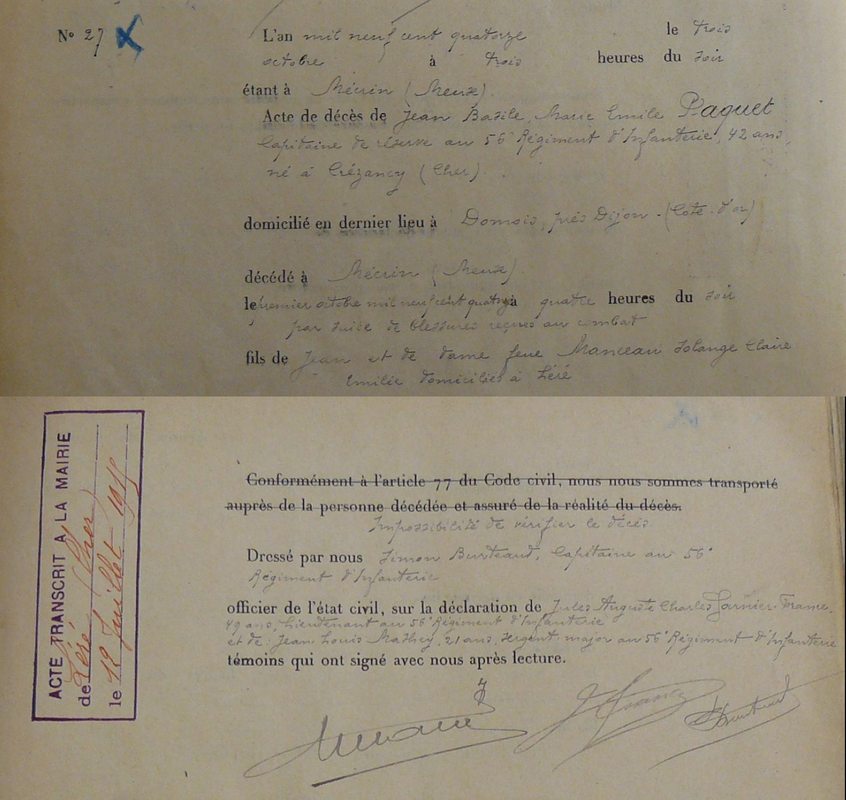 N° 27
L'an mil neuf cent quatorze le trois
octobre à trois heures du soir
étant à Mécrin (Meuse).
Acte de décès de Jean Basile, Marie Emile Paquet
Capitaine de réserve au 56e Régiment d'Infanterie, 42 ans,
né à Crézancy (Cher).
domicilié en dernier lieu à Domois, près Dijon - (Côte-d'or)
décédé à Mécrin (Meuse)
le premier octobre mil neuf cent quatorze à quatre heures du soir
par suite de blessures reçues au combat
fils de Jean et de dame feue Manceau Solange Claire
Emilie domiciliés à Léré
Conformément à l'article 77 du Code civil, nous nous sommes transporté
auprès de la personne décédée et assuré de la réalité du décès.
Impossibilité de vérifier le décès.
Dressé par nous Simon Burteaud, Capitaine au 56e
Régiment d'Infanterie
officier de l'état civil, sur la déclaration de Jules Auguste Charles Garnier France,
49 ans, Lieutenant au 56e Régiment d'Infanterie
et de Jean Louis Mathey, 21 ans, sergent major au 56e Régiment d'Infanterie
témoins qui ont signé avec nous après lecture.
ACTE TRANSCRIT A LA MAIRIE
de Léré (Cher)
le 12 Juillet 1915